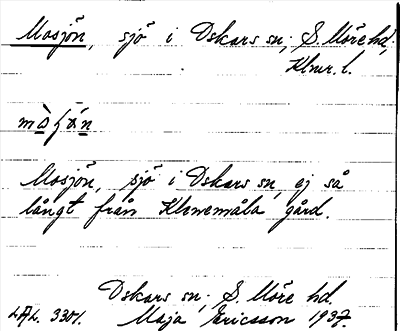 Mosjön, sjö i Oskars sn, S. Möre hd,
Klmr. l.
Mosjön, sjö i Oskars sn, ej så
långt från Klinemåla gård.
Oskars sn, S. Möre hd.
LAL. 3301. Maja Ericsson 1937.